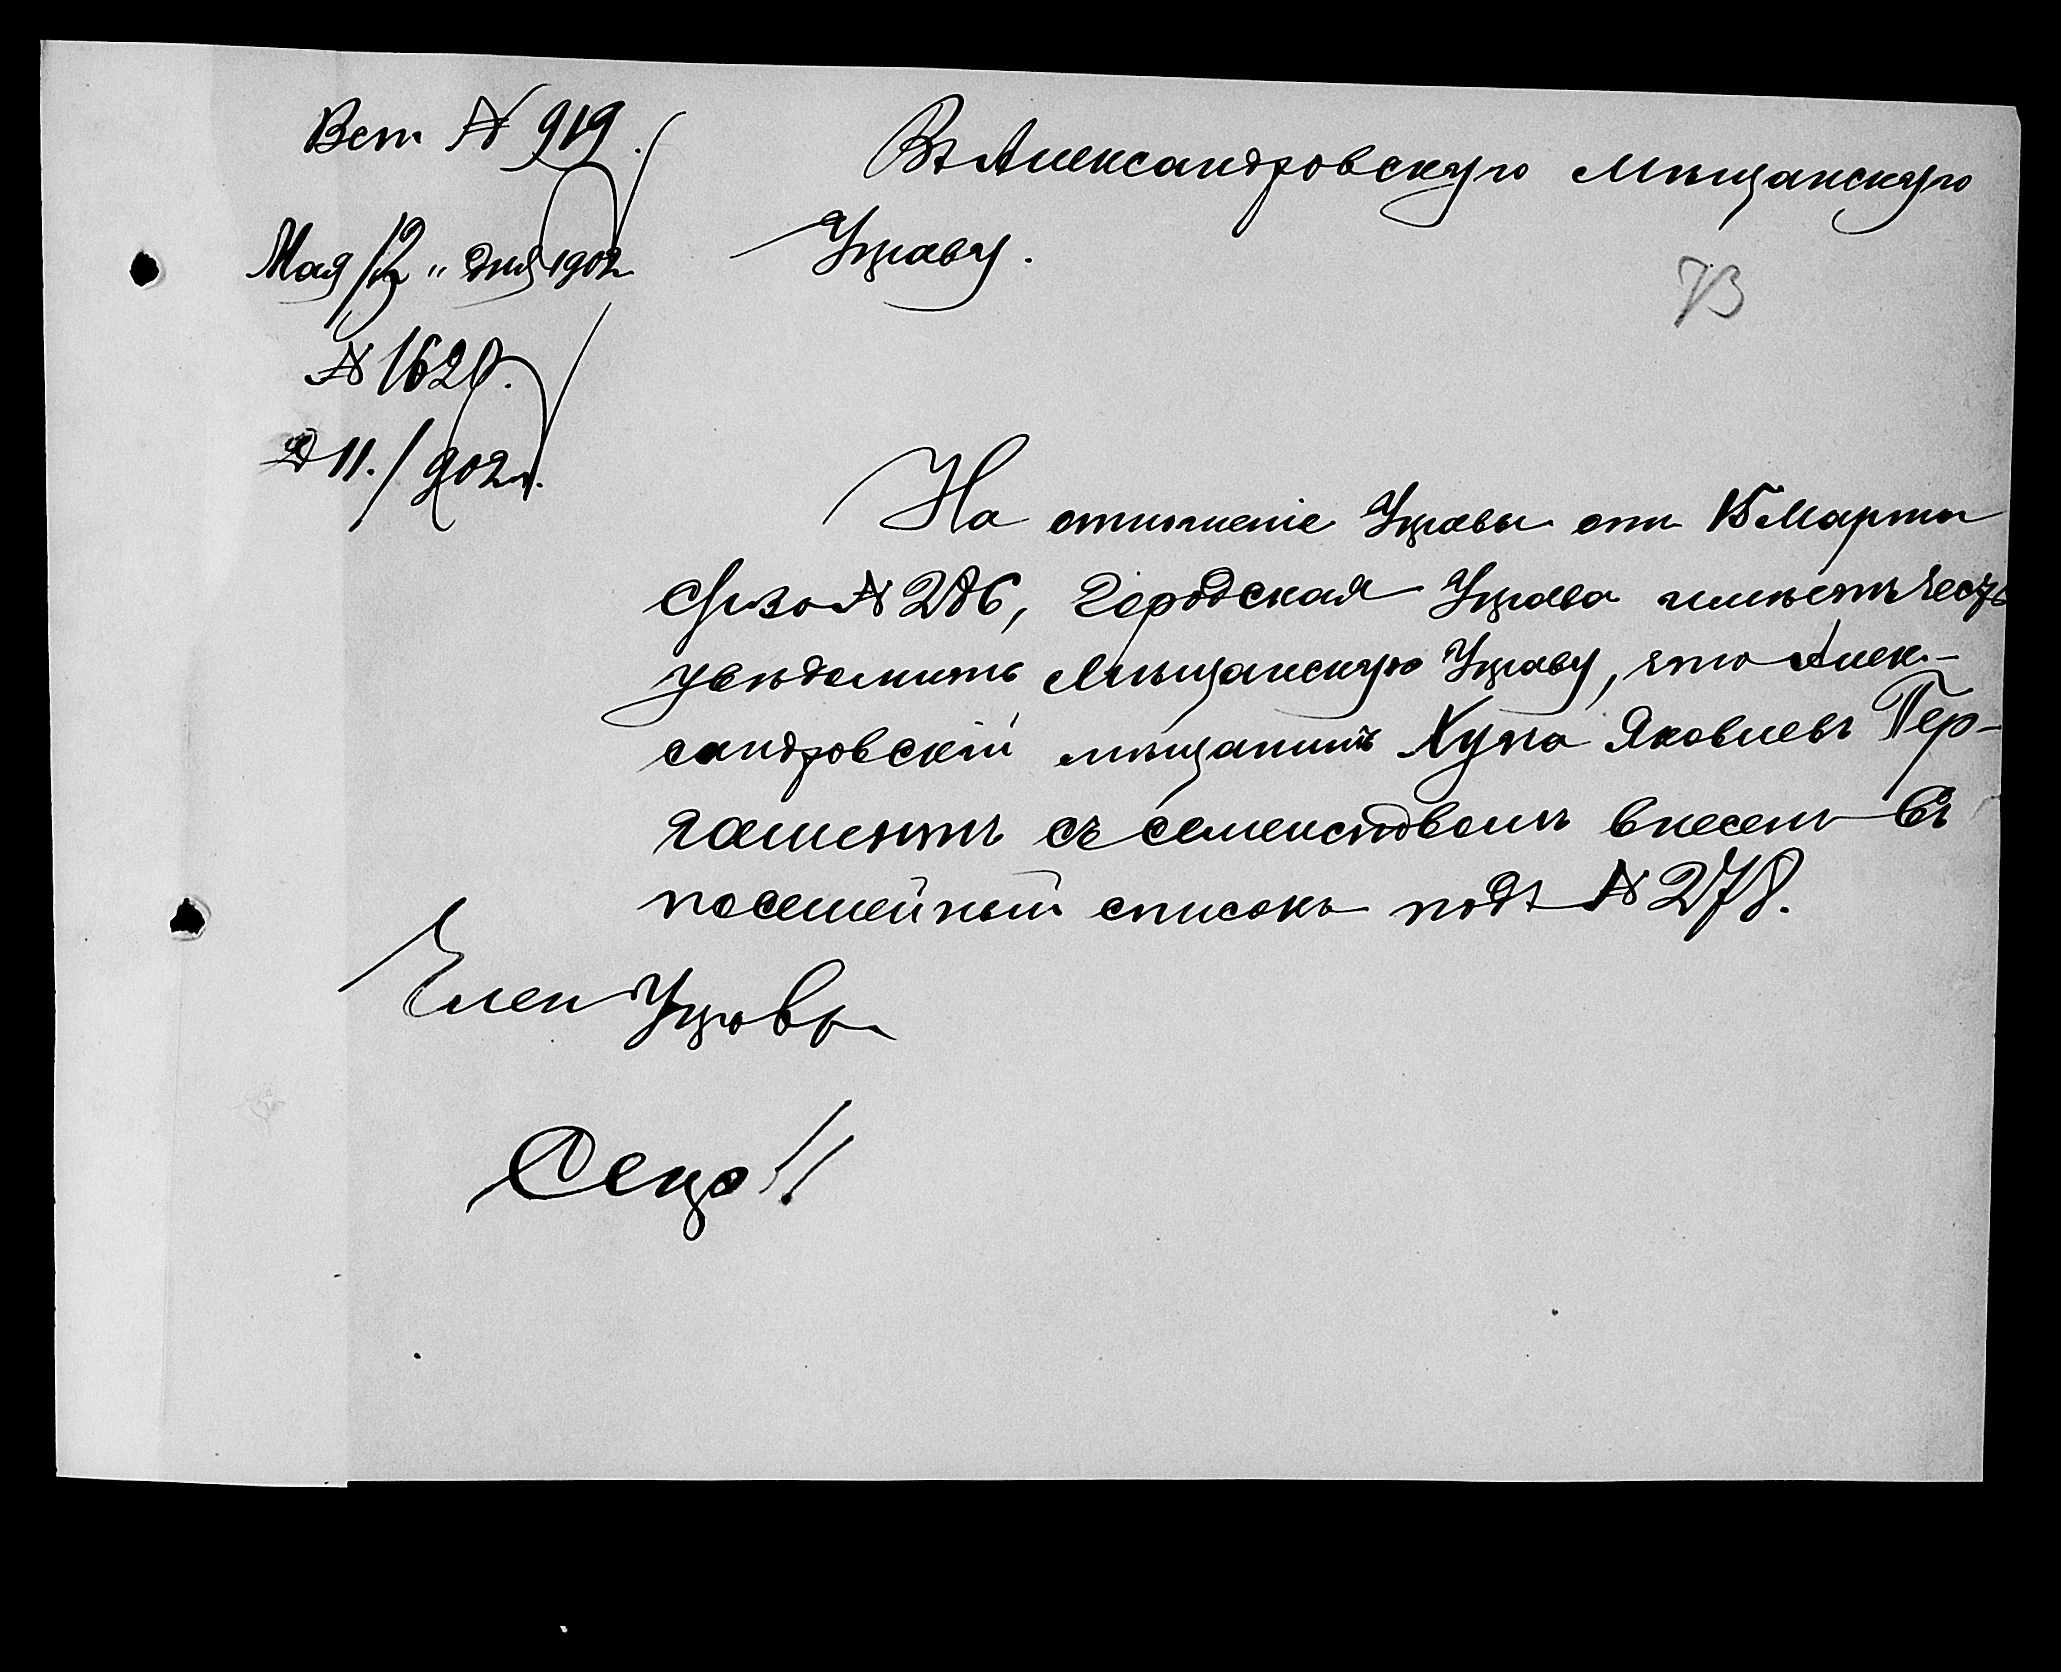 Вст № 919.
Мая 12 " дня 1902
№ 1620.
Д 11./902 г.
Въ Александровскую Мѣщанскую
Управу.
73
На отношеніе Управы отъ 15 Марта
за № 286, Городская Управа имѣетъ честь
увѣдомить Мѣщанскую Управу, что Алек-
сандровскій мѣщанинъ Хуна Яковлевъ Гер-
съ семействомъ внесенъ въ
посемейный списокъ подъ № 278.
Член Управы